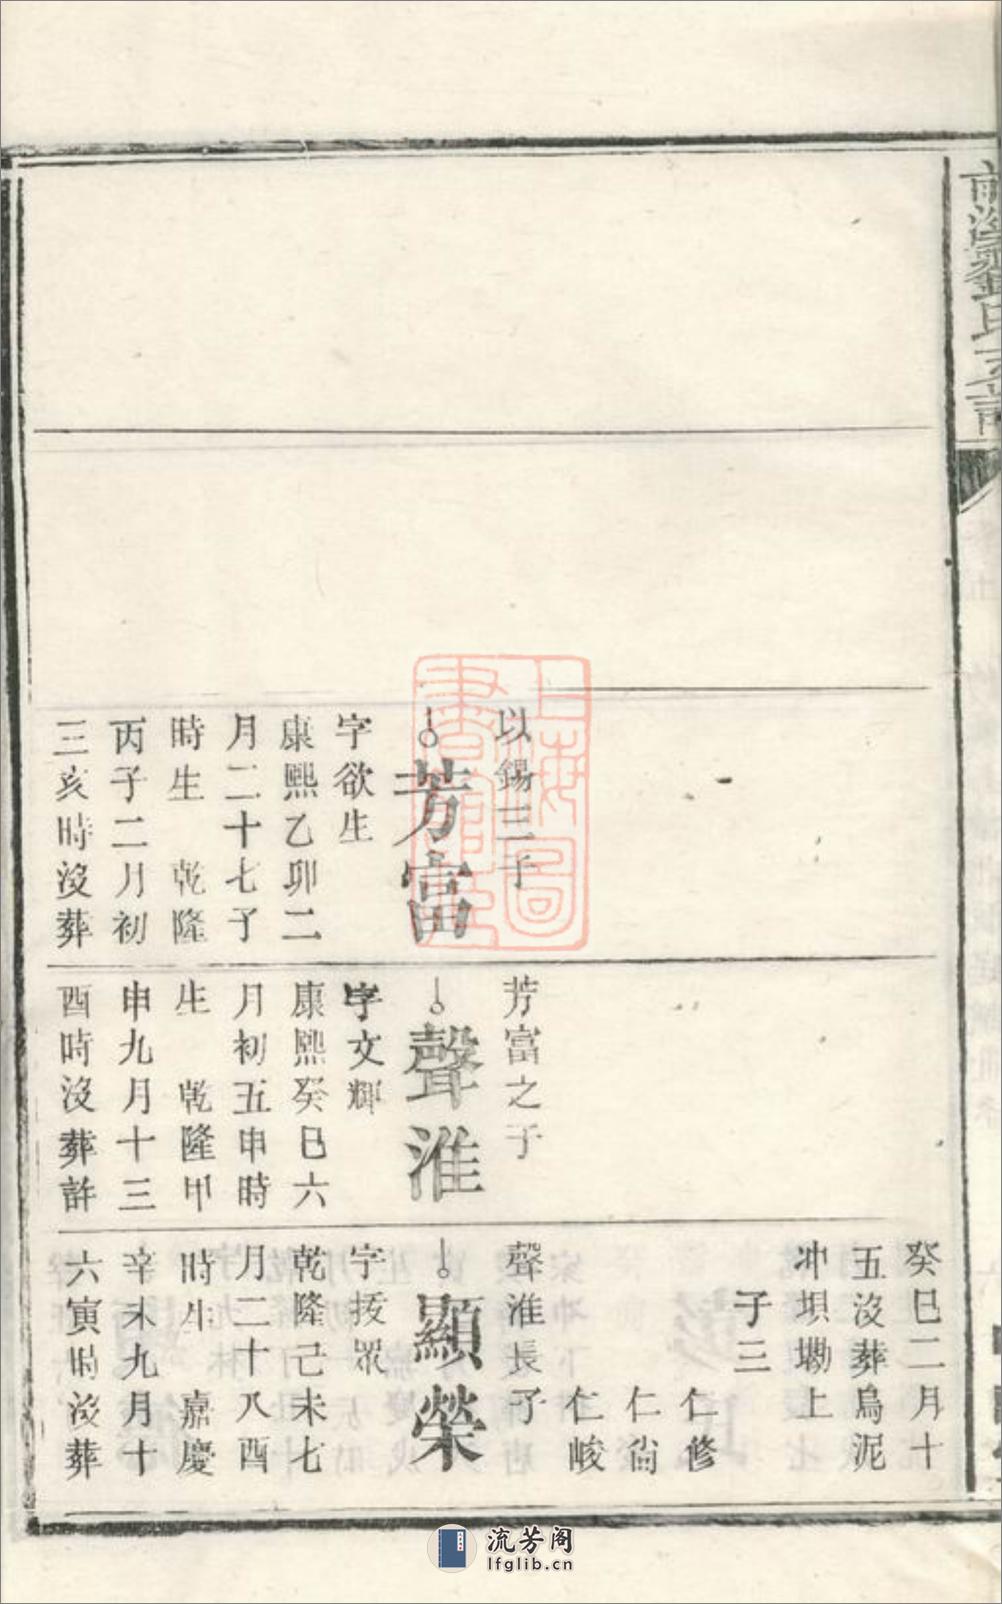 以錫三子
芳富
字欲生
康熙乙卯二
月二十七子
時生 乾隆
丙子二月初
三亥時沒葬
芳富之子
聲淮
字文輝
康熙癸巳六
月初五申時
生 乾隆甲
申九月十三
酉時沒葬許
癸巳二月十
五沒葬烏泥
冲坝墈上
子三
仁修
仁尙
仁峻
聲淮長子
顯榮
字拔眾
乾隆己未七
月二十八酉
時生 嘉慶
辛未九月十
六寅時沒葬
上海圖
書館藏
流芳阁
lfglib.cn